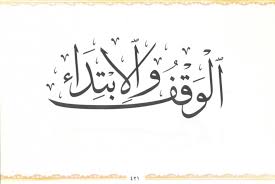 الوَقْفُ وَالِابْتِدَاء
٤٢١